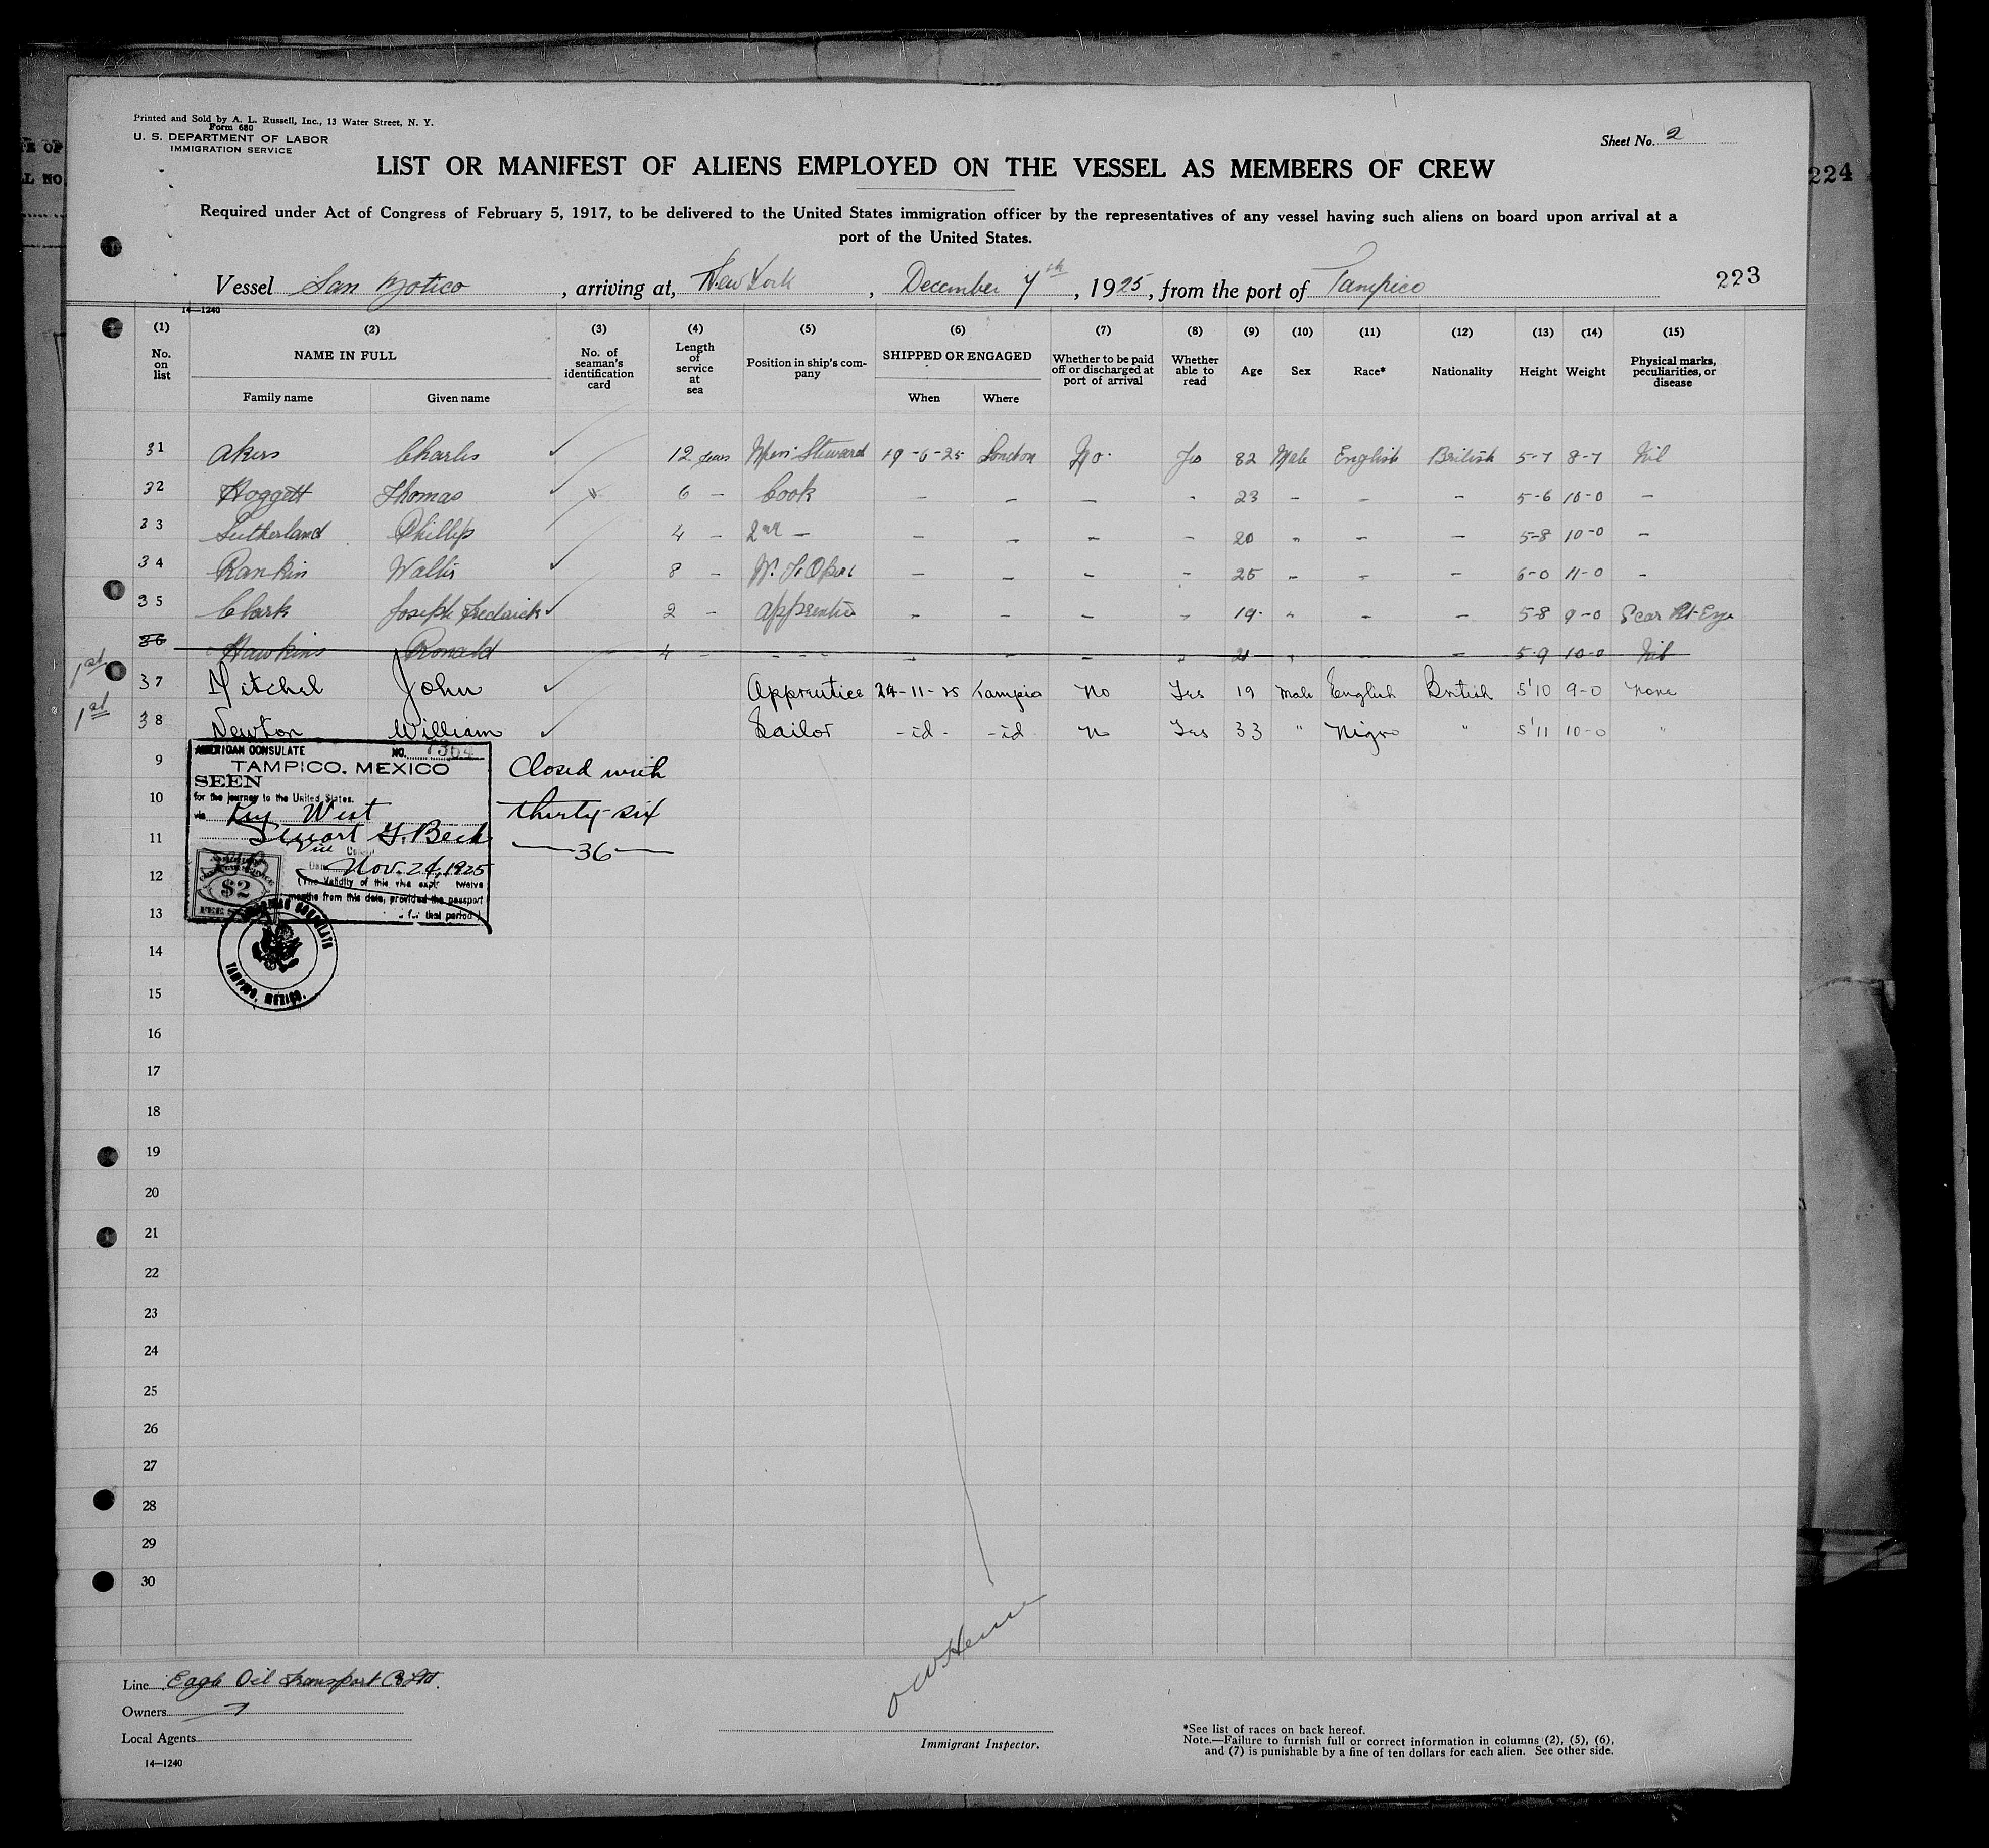 TE OF
LL NO
Printed and Sold by A. L. Russell, Inc., 13 Water Street, N. Y.
Form 680
U. S. DEPARTMENT OF LABOR
IMMIGRATION SERVICE
Sheet No. 2
LIST OR MANIFEST OF ALIENS EMPLOYED ON THE VESSEL AS MEMBERS OF CREW
224
Required under Act of Congress of February 5, 1917, to be delivered to the United States immigration officer by the representatives of any vessel having such aliens on board upon arrival at a
port of the United States.
Vessel San Zotico, arriving at, New York, December 7th, 1925, from the port of Tampico
223
14—1240
(1) (2) (3) (4) (5) (6) (7) (8) (9) (10) (11) (12) (13) (14) (15)
No. on list NAME IN FULL No. of seaman's identification card Length of service at sea Position in ship's com- pany SHIPPED OR ENGAGED Whether to be paid off or discharged at port of arrival Whether able to read Age Sex Race* Nationality Height Weight Physical marks, peculiarities, or disease
Family name Given name When Where
31 Akers Charles 12 years Steward 19-6-25 London No. Yes 32 Male English British 5-7 8-7 Nil
32 Hoggett Thomas 6 - Cook - - - - 23 - - - 5-6 10-0 -
33 Sutherland Phillip 4 - 2nd - - - - - 20 - - - 5-8 10-0 -
34 Rankin Wallis 8 - W. T. Oper - - - - 25 - - - 6-0 11-0 -
35 Clark Joseph Frederick 2 - Apprentice - - - - 19 - - - 5-8 9-0 Scar Rt-Eye
36 Hawkins Ronald 4 - - - - - - - - 21 - - - 5-9 10-0 Nil
1st 37 Mitchel John Apprentice 24-11-25 Tampico No Yes 19 Male English British 5'10 9-0 None
1st 38 Newton William Sailor -id- -id- No Yes 33 " Nigro " 5'11 10-0 "
AMERICAN CONSULATE NO. 7364
TAMPICO, MEXICO
SEEN
for the journey to the United States.
via Key West
Stuart G. Beck
Vice Consul
Date Nov. 24, 1925
(The Validity of this visa expires twelve
months from this date, provided the passport
for that period)
$2
FEE STAMP
AMERICAN CONSULATE
TAMPICO, MEXICO.
Closed with
thirty-six
—36—
9
10
11
12
13
14
15
16
17
18
19
20
21
22
23
24
25
26
27
28
29
30
Line Eagle Oil Transport Co Ltd.
Owners "
Local Agents
14—1240
Immigrant Inspector.
*See list of races on back hereof.
Note.—Failure to furnish full or correct information in columns (2), (5), (6),
and (7) is punishable by a fine of ten dollars for each alien. See other side.